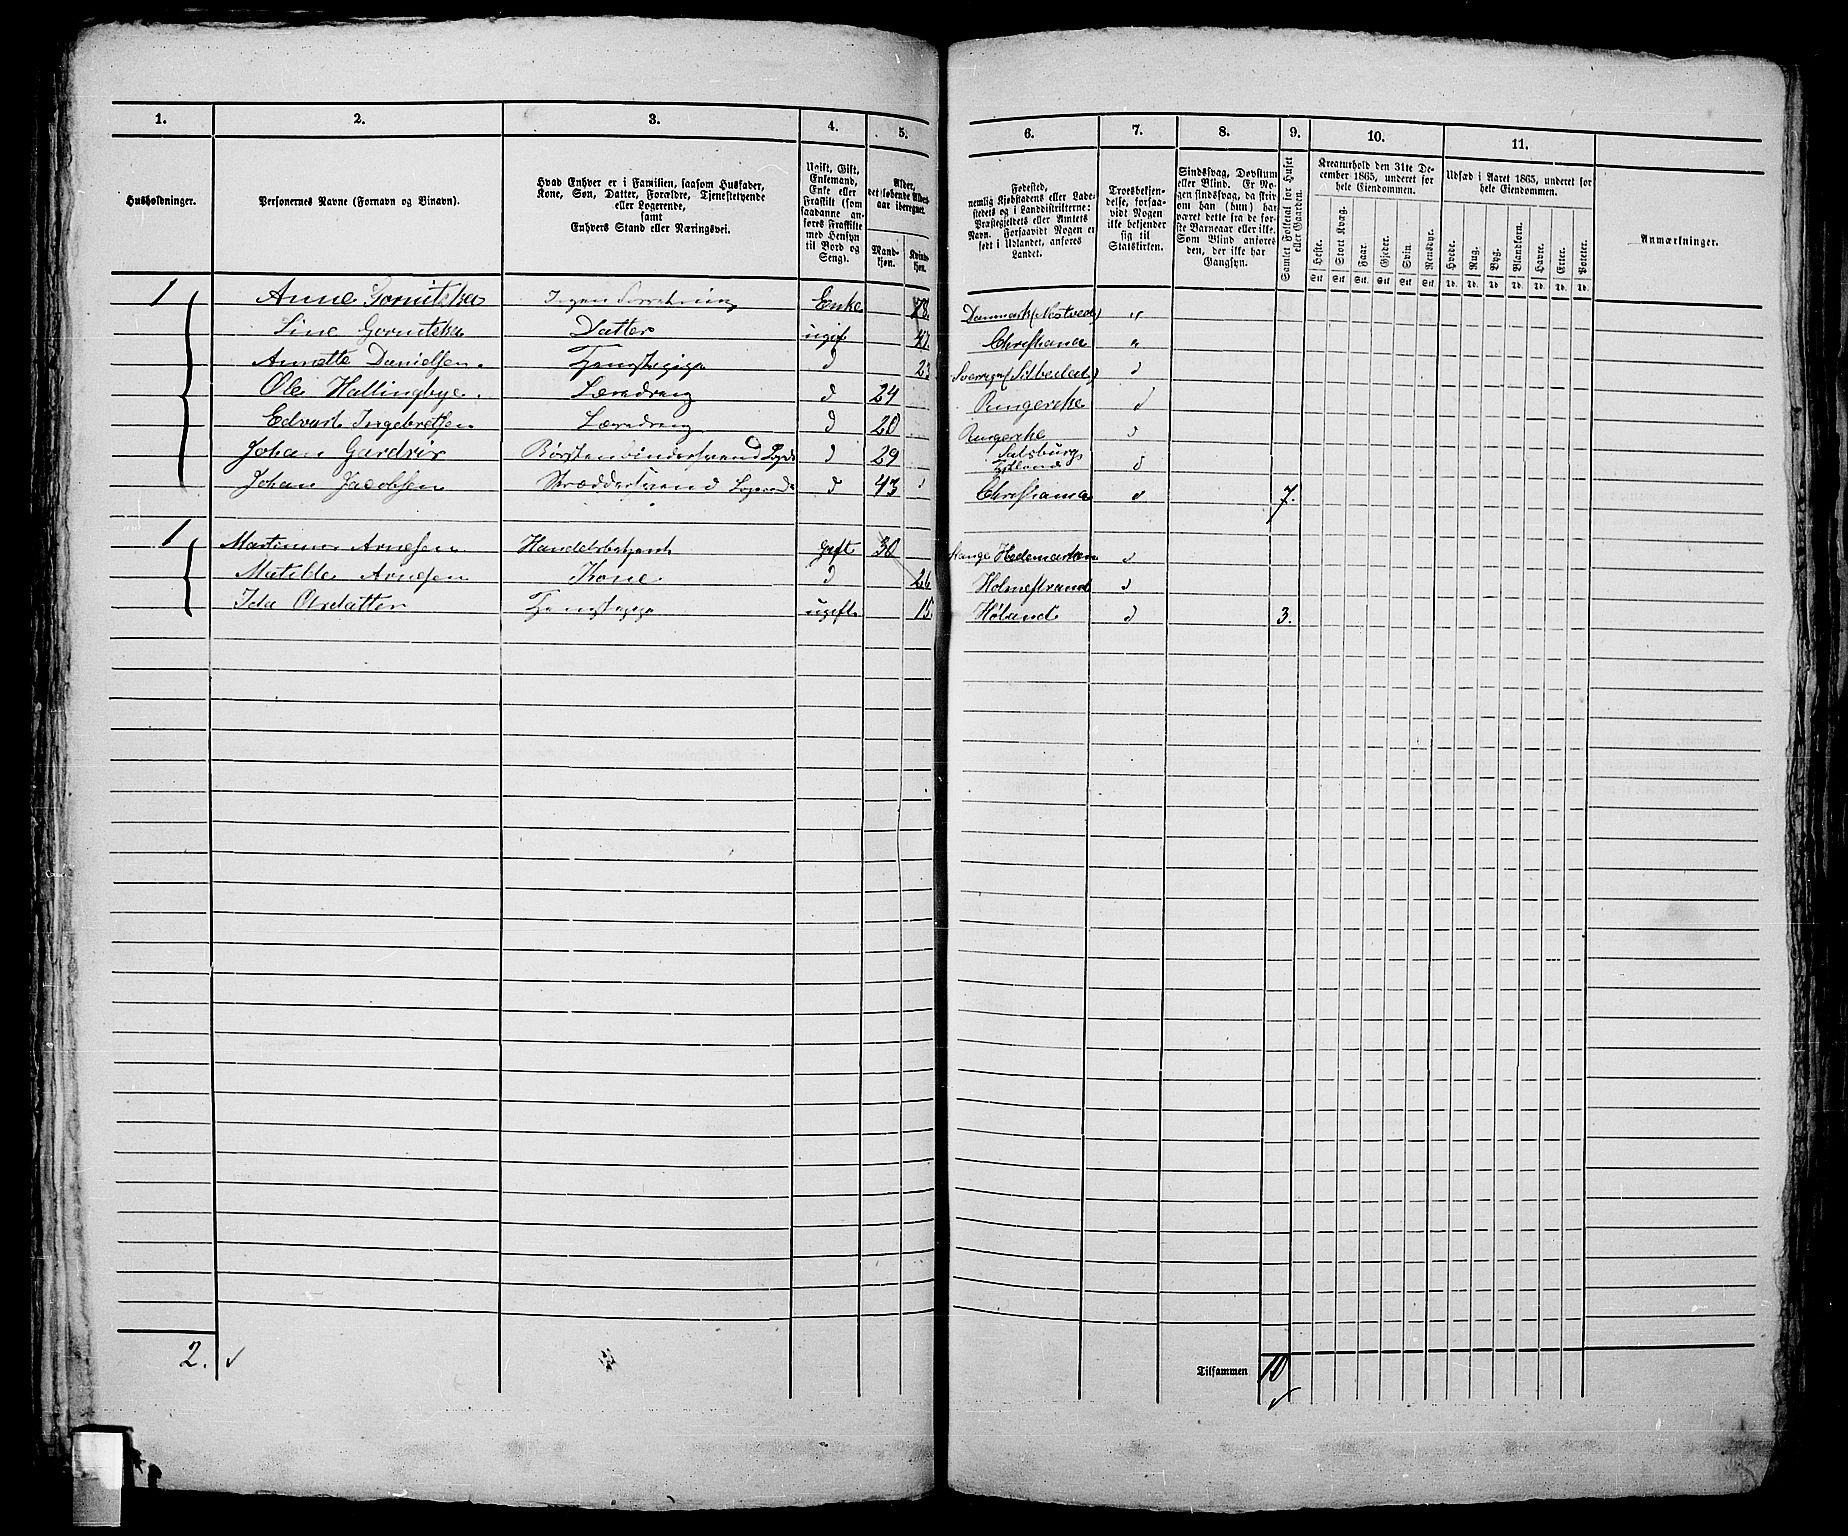 1. 2. 3. 4. 5. 6. 7. 8. 9. 10. 11.
Husholdninger.
Personernes Navne (Fornavn og Binavn).
Hvad Enhver er i Familien, saasom Husfader,
Kone, Søn, Datter, Forældre, Tjenestetyende
eller Logerende,
samt
Enhvers Stand eller Næringsvei.
Ugift, Gift,
Enkemand,
Enke eller
Fraskilt (som
saadanne an-
føres Fraskilte
med Hensyn
til Bord og
Seng).
Alder,
det løbende Alders-
aar iberegnet.
Mand-
kjøn.
Kvind-
kjøn.
Fødested,
nemlig Kjøbstadens eller Lade-
stedets og i Landdistrikterne:
Præstegjeldets eller Amtets
Navn. Forsaavidt Nogen er
født i Udlandet, anføres
Landet.
Troesbekjen-
delse, forsaa-
vidt Nogen
ikke bekjender
sig til
Statskirken.
Sindssvag, Døvstum
eller Blind. Er No-
gen sindssvag, da skriv
om han (hun) har
været dette fra de før-
ste Barneaar eller ikke.
Som Blind anføres
den, der ikke har
Gangsyn.
Samlet Folketal for Huset
eller Gaarden.
Kreaturhold den 31te De-
cember 1865, underet for
hele Eiendommen.
Heste. Stort Kvæg. Faar. Gjeder. Svin. Rensdyr.
Stk. Stk. Stk. Stk. Stk. Stk.
Udsæd i Aaret 1865, underet for
hele Eiendommen.
Hvede. Rug. Byg. Blandkorn. Havre. Erter. Poteter.
Td. Td. Td. Td. Td. Td. Td.
Anmærkninger.
1 Anne Enke 78.
Line Datter ugif 47. Christiania "
Annette Danielsen. Tjenstepige d 23
Ole Hallingbye. Læredreng d 24 Ringerike d
Edvart Ingebretsen Læredreng d 20 Ringerike d
Johan d 29 Salsburg d
Johan Jacobsen Logerende d 43 Christiania d 7.
1 Martinus Arnesen Gift 30 Stange Hedemarken d
Matilde Arnesen Kone d 26 Holmestrand d
Ida Olsdatter Tjenstepige ugift 15. Høland d 3.
2.
Tilsammen 10